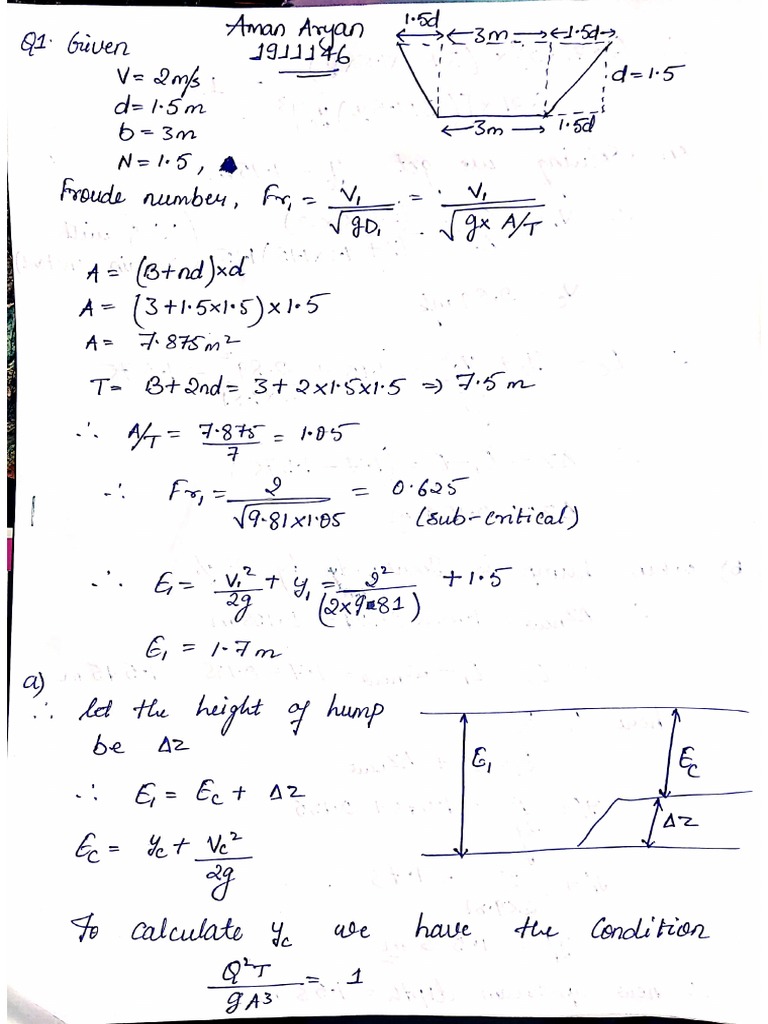 Aman Aryan
1911146
Q1. Given
V = 2m/s
d = 1.5m
b = 3m
N = 1.5,
1.5d 3m 1.5d
d = 1.5
3m 1.5d
Froude number, Fr₁ = V₁/√gD₁ = V₁/√g× A/T
A = (B+nd)×d
A = (3+1.5×1.5)×1.5
A = 7.875m²
T = B+2nd = 3+2×1.5×1.5 ⇒ 7.5m
∴ A/T = 7.875/7 = 1.05
∴ Fr₁ = 2/√9.81×1.05 = 0.625
(sub-critical)
∴ E₁ = V₁²/2g + y₁ = 2²/(2×9.81) + 1.5
E₁ = 1.7m
a)
∴ let the height of hump
be Δz
∴ E₁ = Ec + Δz
Ec = yc + Vc²/2g
E₁ Ec
Δz
To calculate yc we have the Condition
Q²T/gA³ = 1